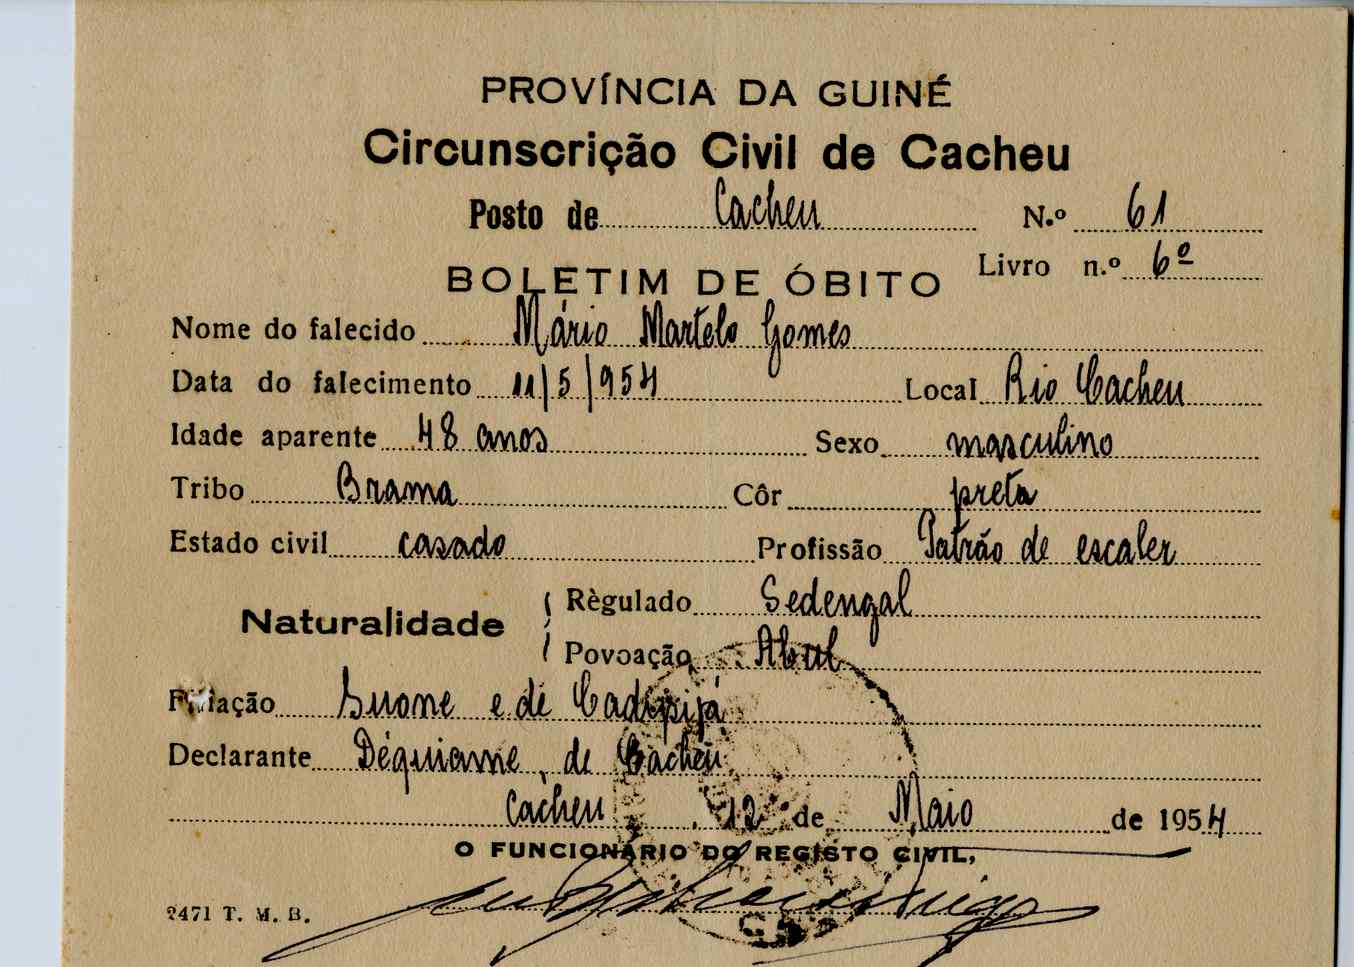 PROVÍNCIA DA GUINÉ
Circunscrição Civil de Cacheu
Posto de Cacheu N.º 61
Livro n.º 6º
BOLETIM DE ÓBITO
Nome do falecido Mário Martelo Gomes
Data do falecimento 11/5/954 Local Rio Cacheu
Idade aparente 48 anos Sexo masculino
Tribo Brama Côr preta
Estado civil casado Profissão Patrão de escaler
Naturalidade
Règulado Sedengal
Povoação Abul
Filiação Suone e de
Declarante Déquiame, de Cacheu
Cacheu, 12 de Maio de 1954
O FUNCIONÁRIO DO REGISTO CIVIL,
2471 T. M. B.